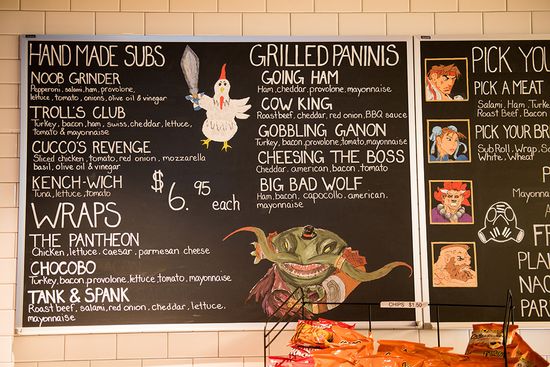 HAND MADE SUBS
NOOB GRINDER
Pepperoni, salami, ham, provolone,
lettuce, tomato, onions, olive oil & vinegar
TROLLS CLUB
Turkey, bacon, ham, swiss, cheddar, lettuce,
tomato & mayonnaise
CUCCO'S REVENGE
Sliced chicken, tomato, red onion, mozzarella
basil, olive oil & vinegar
KENCH-WICH
Tuna, lettuce, tomato
$6.95 each
WRAPS
THE PANTHEON
Chicken, lettuce, caesar, parmesan cheese
CHOCOBO
Turkey, bacon, provolone, lettuce, tomato, mayonnaise
TANK & SPANK
Roast beef, salami, red onion, cheddar, lettuce,
mayonnaise
GRILLED PANINIS
GOING HAM
Ham, cheddar, provolone, mayonnaise
COW KING
Roast beef, cheddar, red onion, BBQ sauce
GOBBLING GANON
Turkey, bacon, provolone, tomato, mayonnaise
CHEESING THE BOSS
Cheddar, american, bacon, tomato
BIG BAD WOLF
Ham, bacon, capocollo, american,
mayonnaise
PICK YOU
PICK A MEAT
Salami, Ham, Turke
Roast Beef, Bacon
PICK YOUR BR
Sub Roll, Wrap, So
White, Wheat
P
Mayonna
A
FR
PLAI
NAC
PARM
CHIPS $1.50